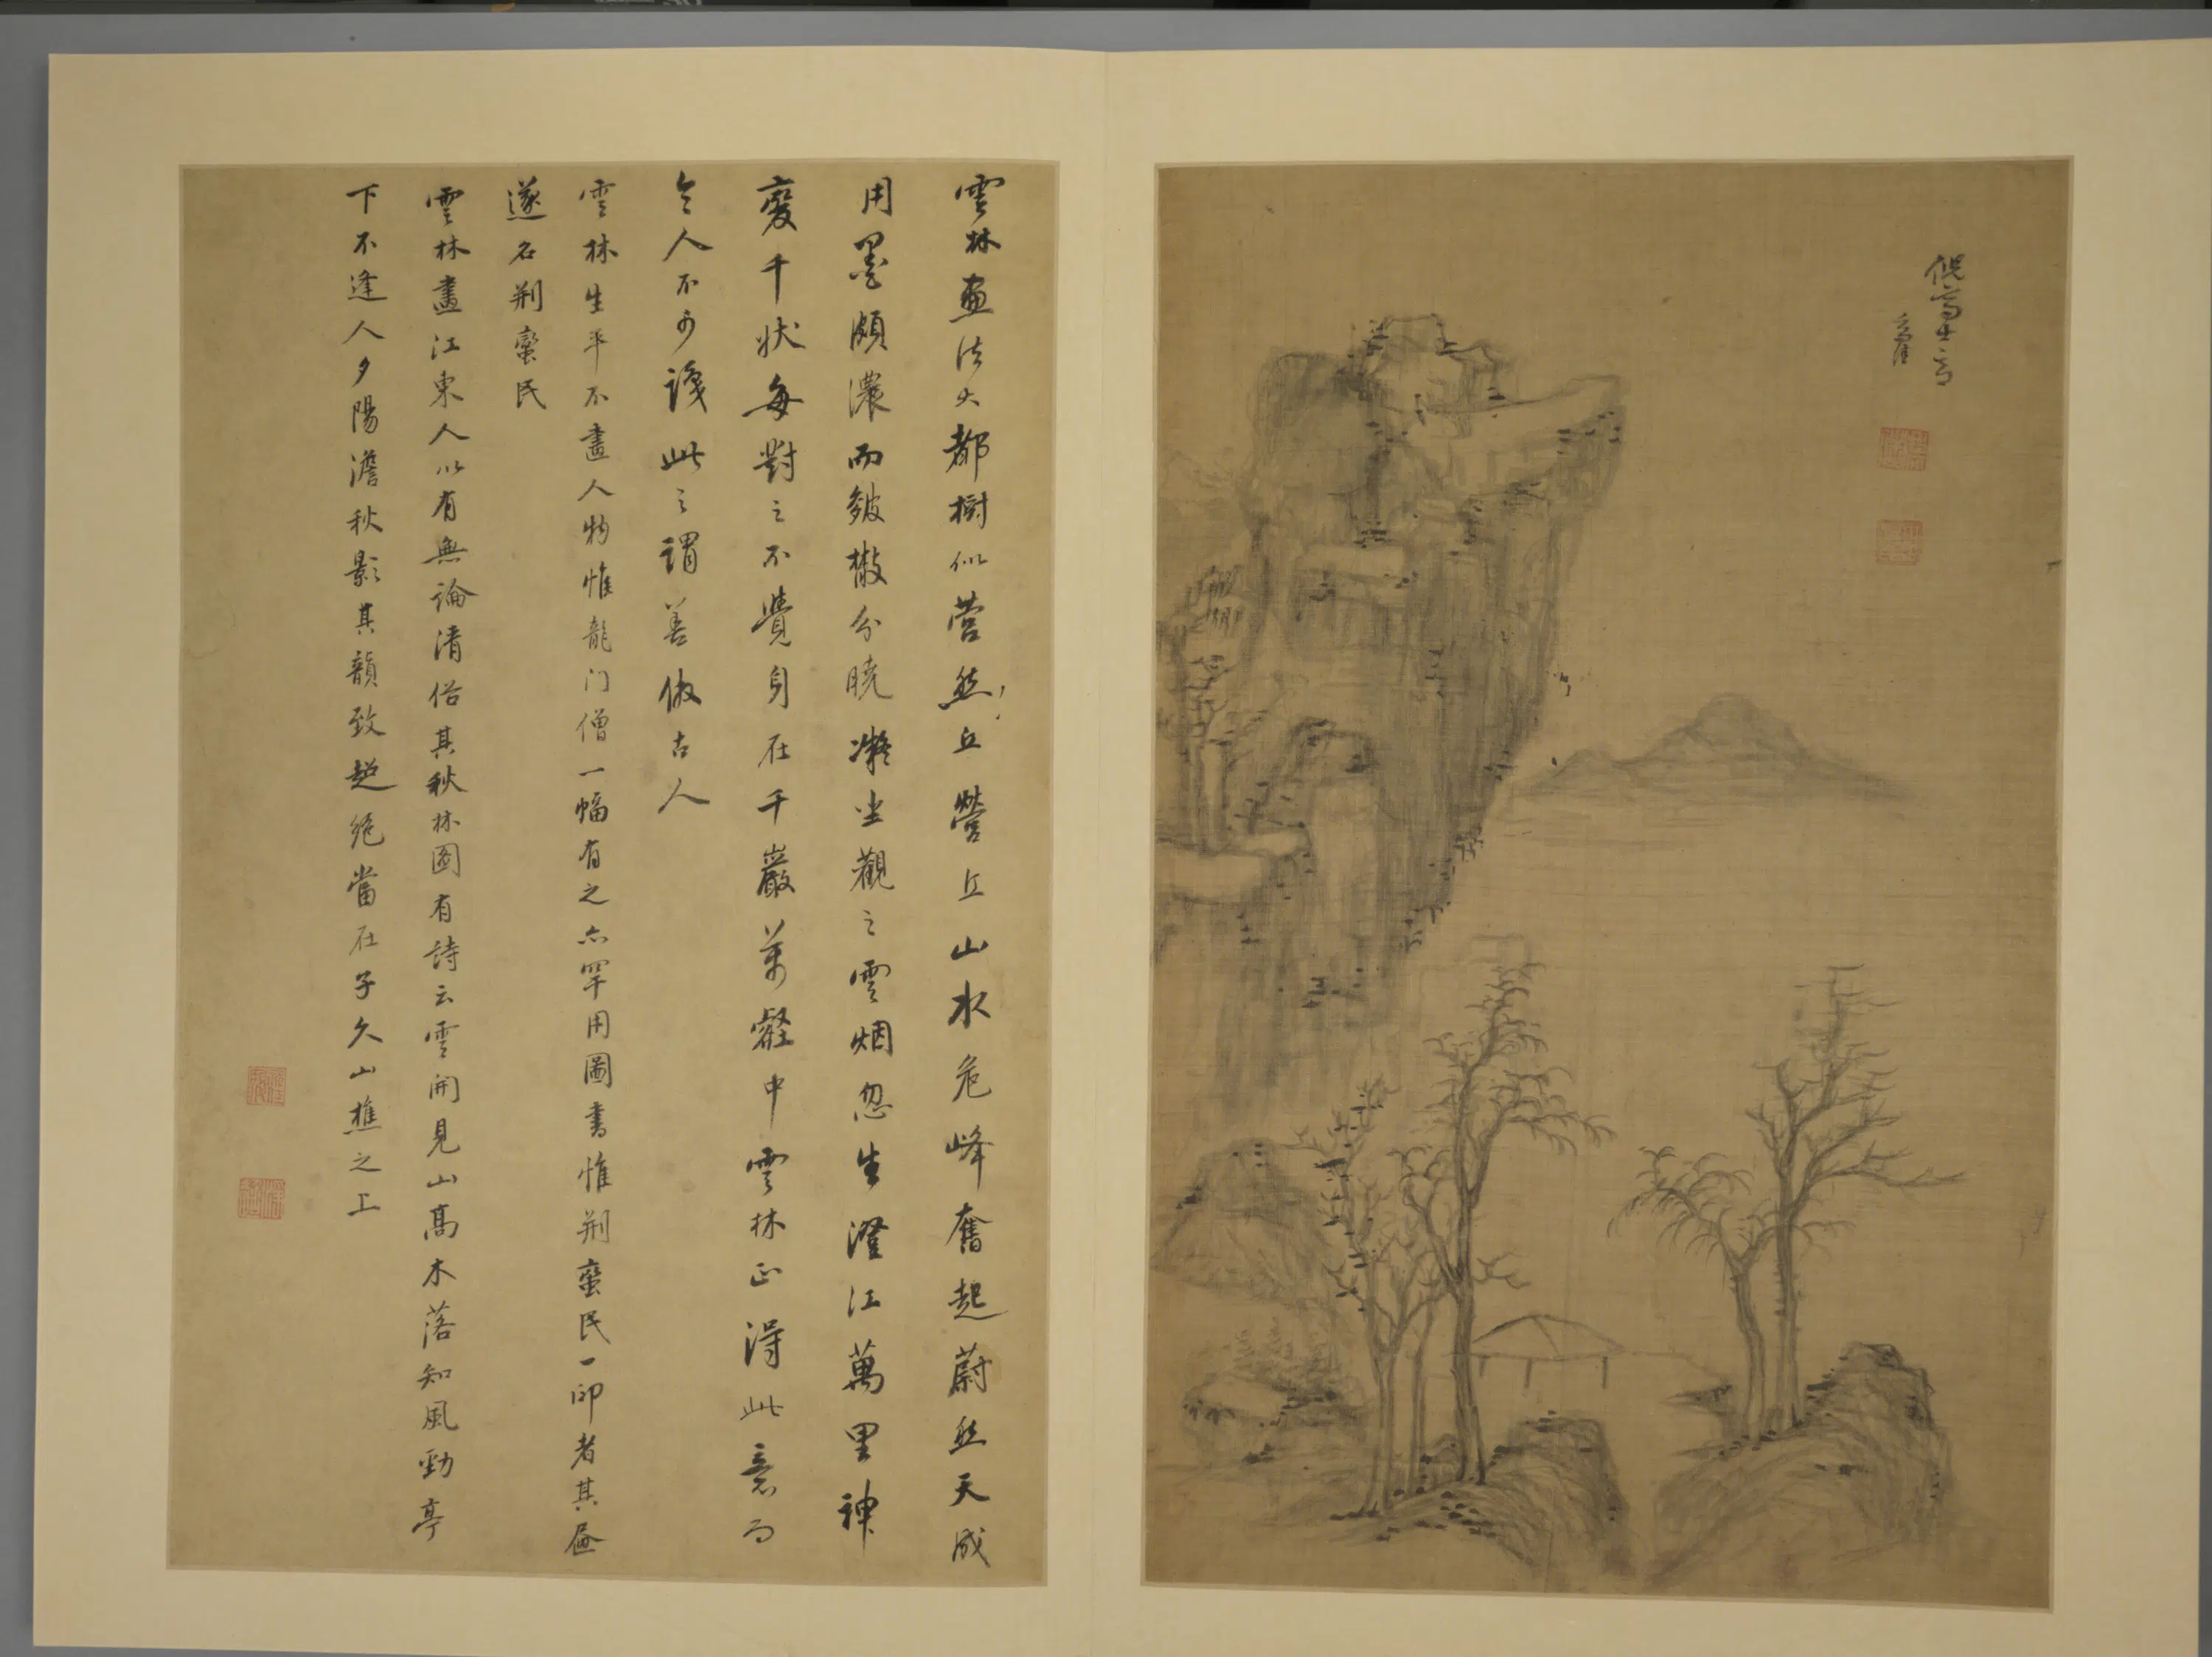 倪高士意
雲林畫法大都樹似营然丘營丘山水危峰奮起蔚然天成
用墨頗濃而皴散分曉凝坐觀之雲烟忽生澄江萬里神
變千狀每對之不覺身在千巖萬壑中雲林正得此意而
今人不識此之謂善倣古人
雲林生平不畫人物惟龍门僧一幅有之亦罕用圖書惟荆蠻民一印者其畫
遂名荆蠻民
雲林畫江東人以有無論清俗其秋林圖有詩云雲開見山高木落知風勁亭
下不逢人夕陽澹秋影其韻致超絕當在子久山樵之上